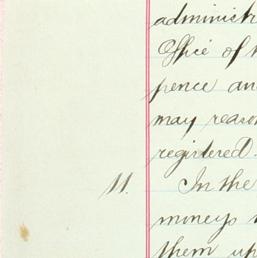 administ
Office of
pence an
may reaso
registered.
11. In the
moneys
them up